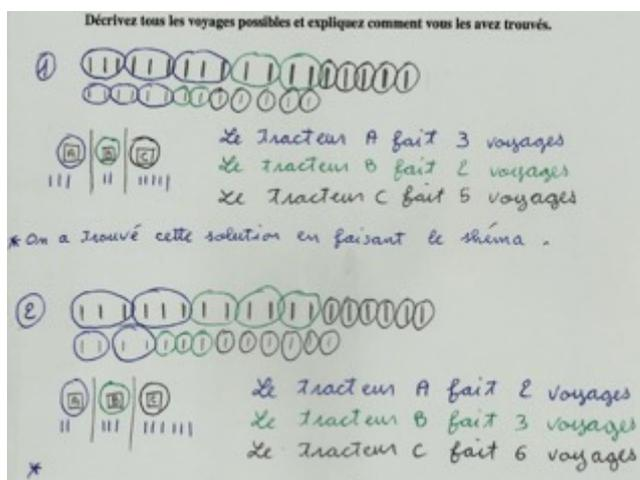 Décrivez tous les voyages possibles et expliquez comment vous les avez trouvés.
1
A B C
Le Tracteur A fait 3 voyages
Le Tracteur B fait 2 voyages
Le Tracteur C fait 5 voyages
* On a trouvé cette solution en faisant le shéma .
2
A B C
Le Tracteur A fait 2 voyages
Le Tracteur B fait 3 voyages
Le Tracteur C fait 6 voyages
*